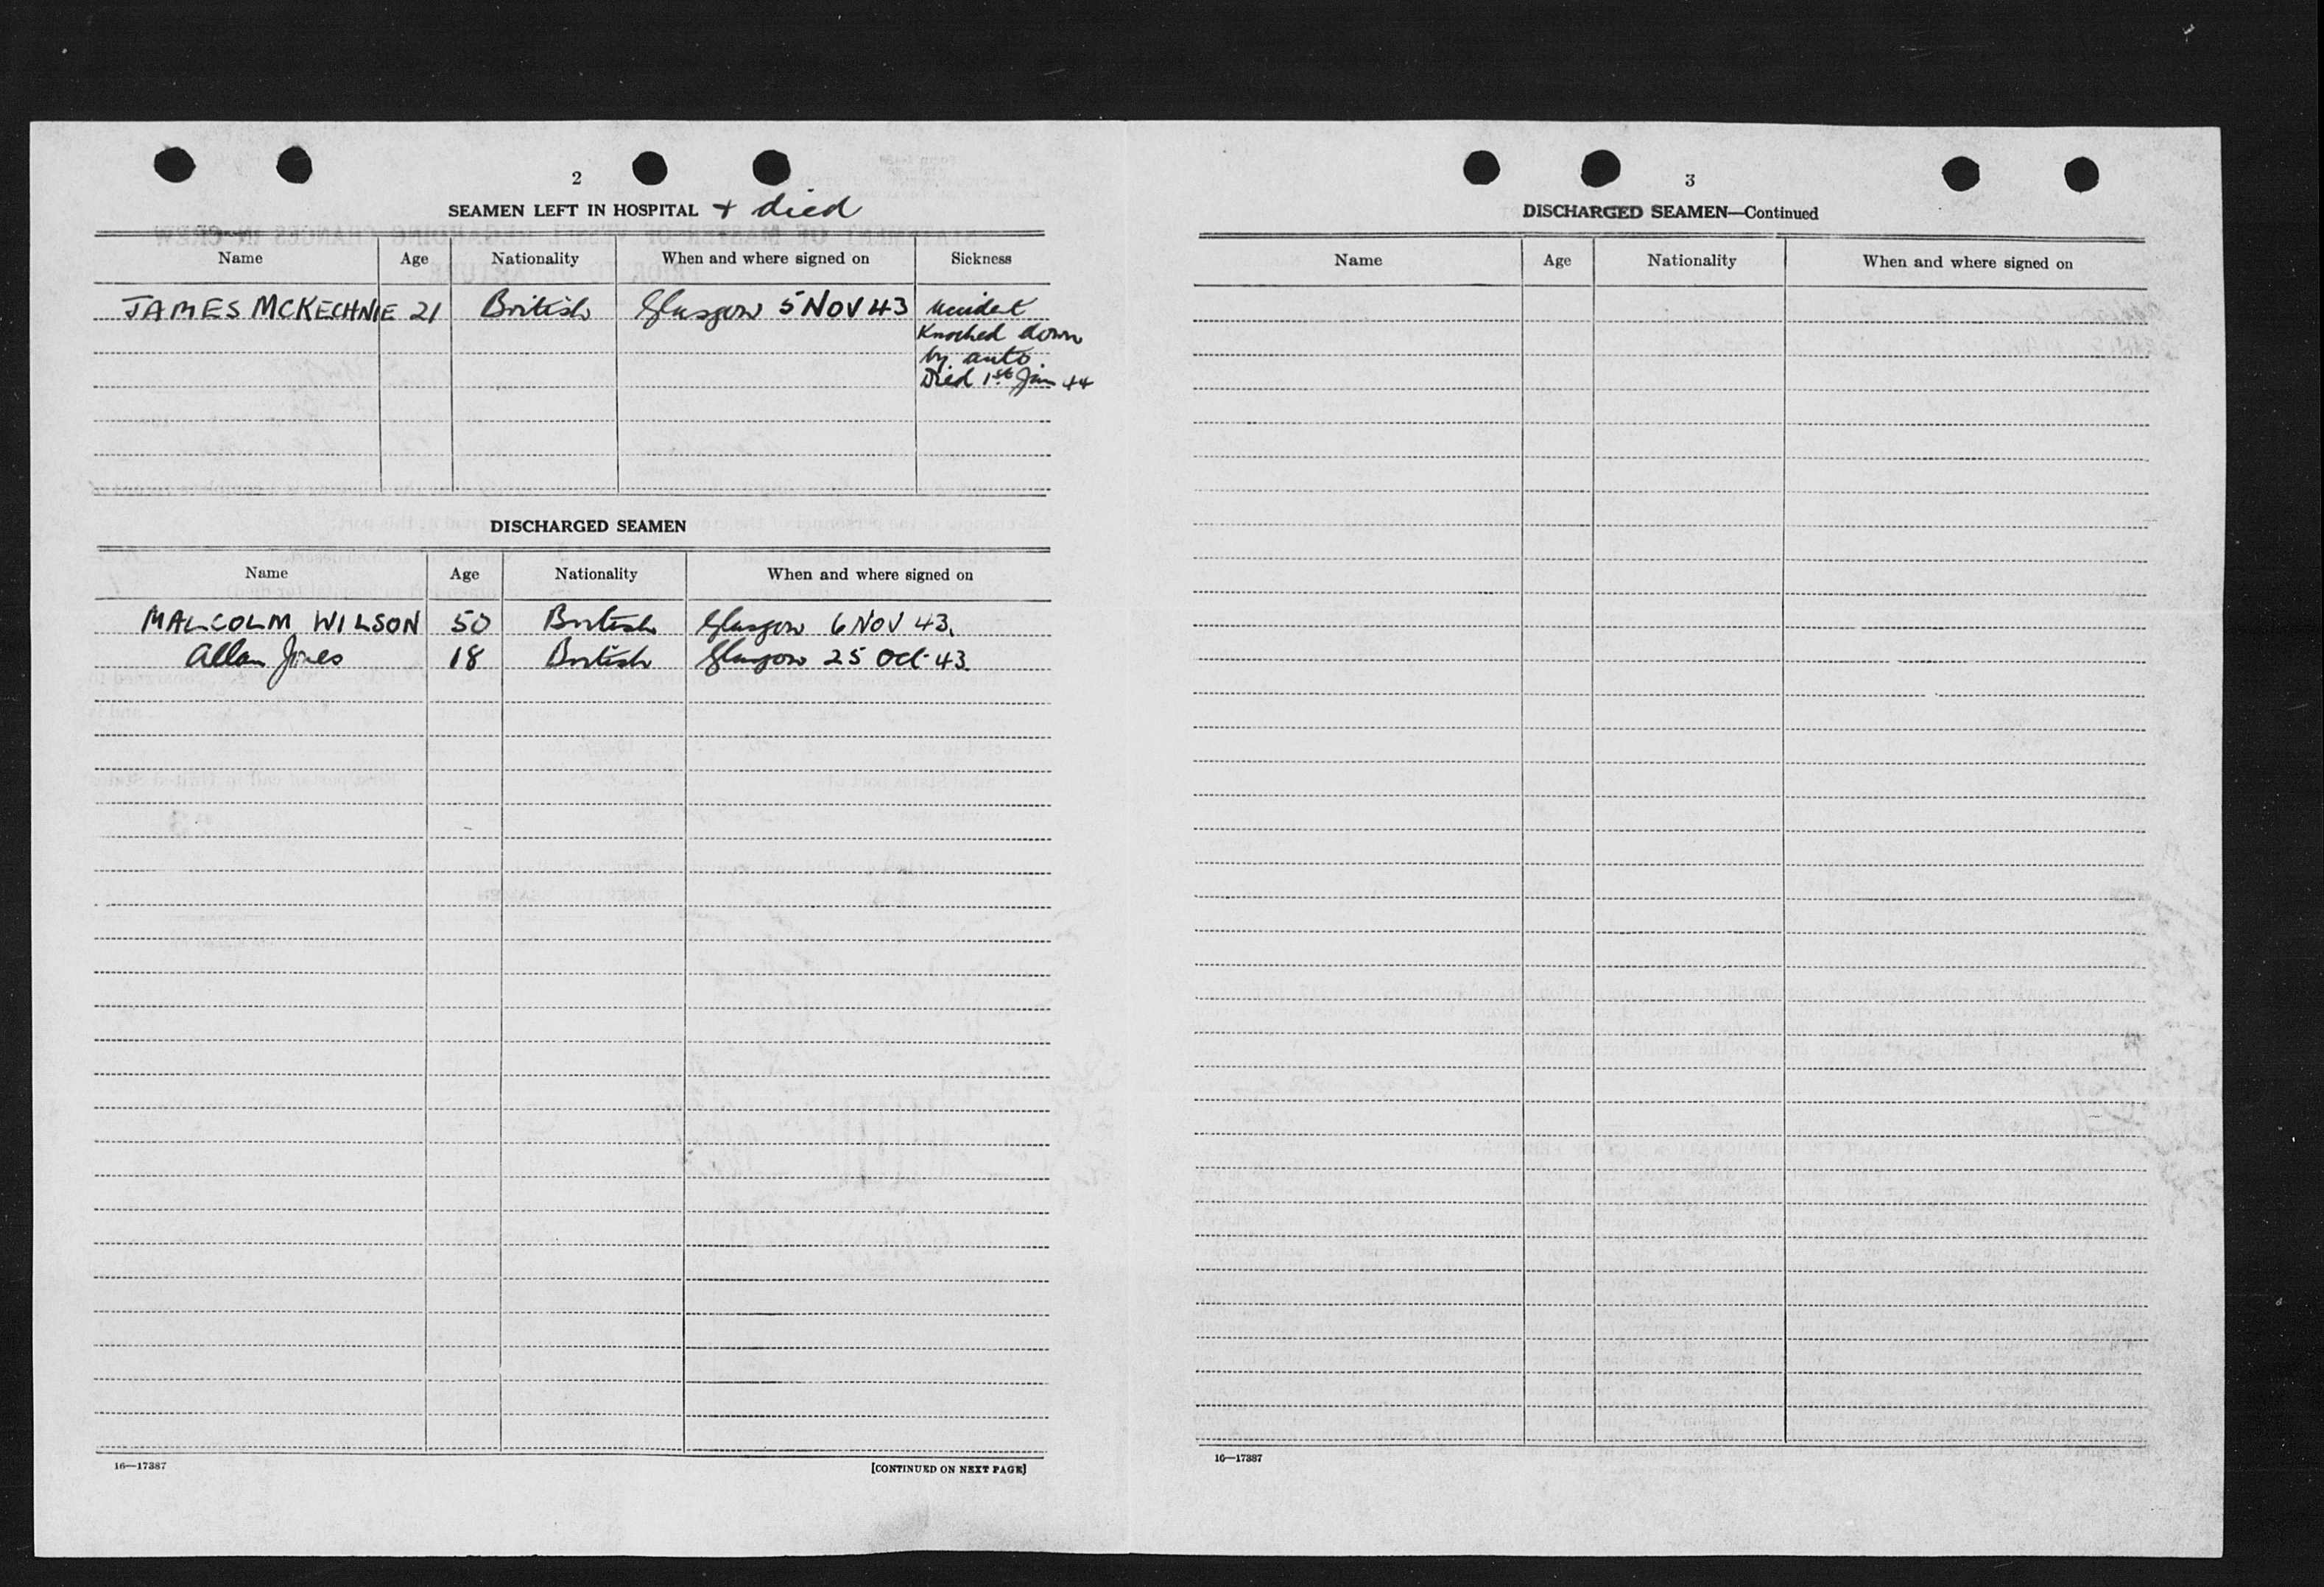 2
SEAMEN LEFT IN HOSPITAL + died
Name Age Nationality When and where signed on Sickness
JAMES MCKECHNIE 21 British Glasgow 5 NOV 43 accident
Knocked down
by auto
Died 1st Jan 44
DISCHARGED SEAMEN
Name Age Nationality When and where signed on
MALCOLM WILSON 50 British Glasgow 6 NOV 43.
Allan Jones 18 British Glasgow 25 Oct. 43.
16—17387 [CONTINUED ON NEXT PAGE]
3
DISCHARGED SEAMEN—Continued
Name Age Nationality When and where signed on
16—17387